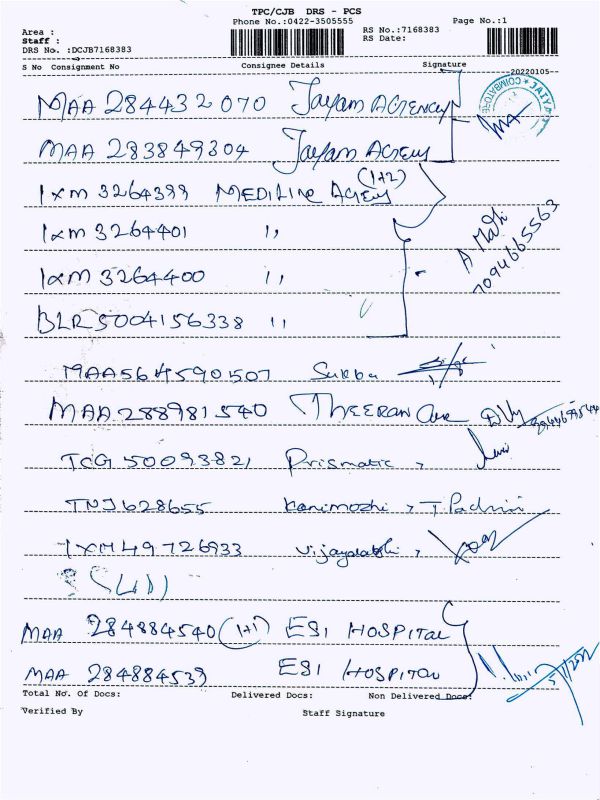 TPC/CJB DRS - PCS
Phone No.:0422-3505555 Page No.:1
Area :
Staff :
DRS No. :DCJB7168383
RS No.:7168383
RS Date:
S No Consignment No Consignee Details Signature
20220105
MAA 284432 070 Jayam AGENCY
MAA 283849304 Jayam Agency
IXM 3264399 MEDILINE AGENCY (1+2)
IXM 3264401 ,,
IXM 3264400 ,,
BLR5004156338 ,,
7094665563
MAA564590507
MAA 288981540 THEERAN
TCG 50093821 Prismatic
TNJ628655 Kanimozhi T.Padmini
IXM49726933
MAA 284884540 (1+1) ESI HOSPITAL
MAA 284884539 ESI HOSPITAL
Total No. Of Docs: Delivered Docs: Non Delivered Docs:
Verified By Staff Signature